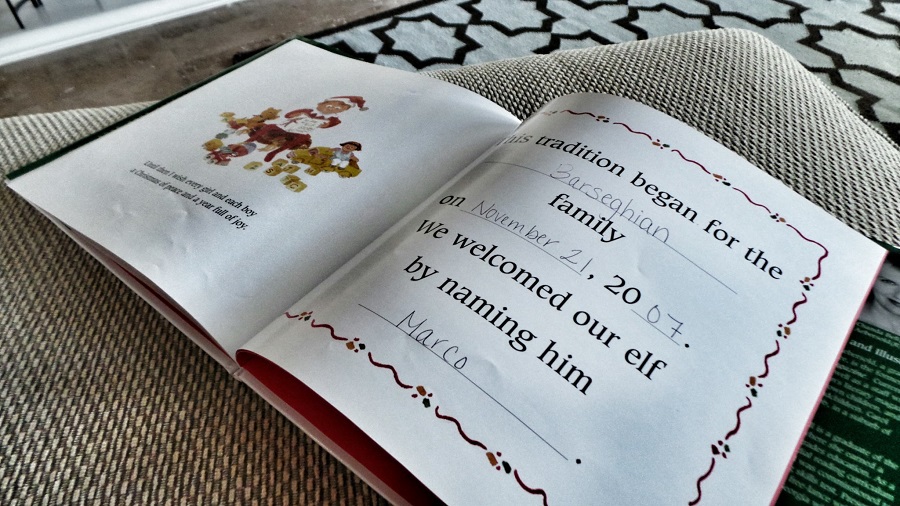 Until then I wish every girl and each boy
a Christmas of peace and a year full of joy.
This tradition began for the
Barseghian
family
on November 21, 2007.
We welcomed our elf
by naming him
Marco.
and Illus